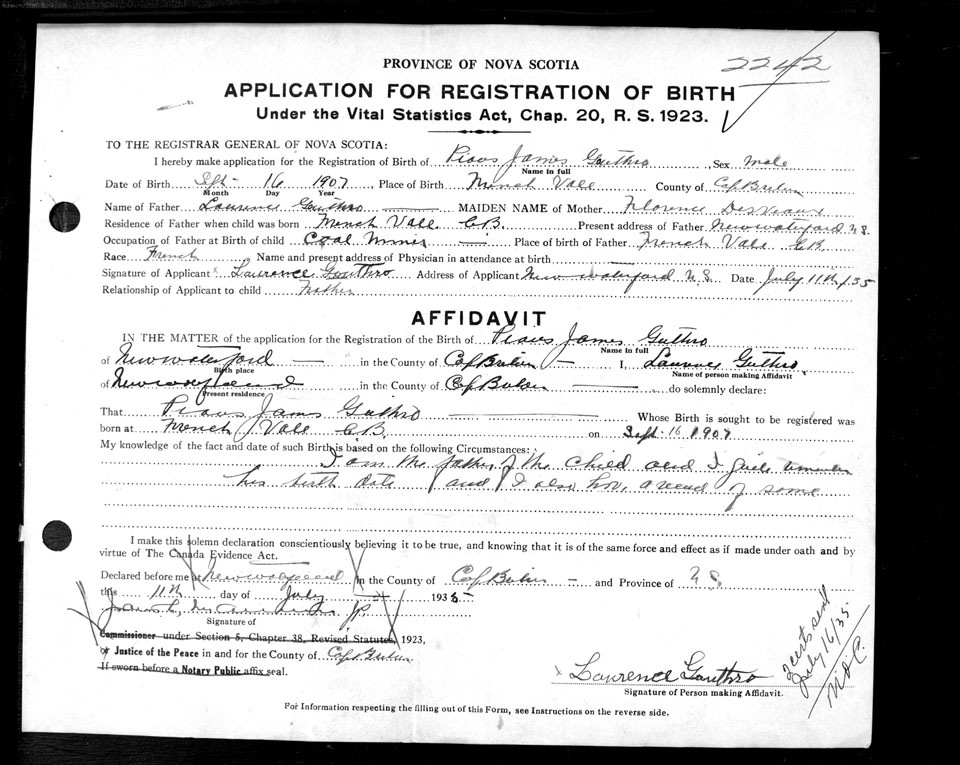 2242
PROVINCE OF NOVA SCOTIA
APPLICATION FOR REGISTRATION OF BIRTH
Under the Vital Statistics Act, Chap. 20, R. S. 1923.
TO THE REGISTRAR GENERAL OF NOVA SCOTIA:
I hereby make application for the Registration of Birth of Pious James Gouthro, Sex Male
Name in full
Date of Birth Sept - 16 1907, Place of Birth French Vale County of Cape Breton
Month Day Year
Name of Father Laurence Gouthro MAIDEN NAME of Mother Florence DesVeaux
Residence of Father when child was born French Vale C.B. Present address of Father New Waterford N.S.
Occupation of Father at Birth of child Coal Miner Place of birth of Father French Vale C.B.
Race French Name and present address of Physician in attendance at birth
Signature of Applicant Lawrence Gouthro Address of Applicant New Waterford N.S. Date July 11th/35
Relationship of Applicant to child Father
AFFIDAVIT
IN THE MATTER of the application for the Registration of the Birth of Pious James Guthro
Name in full
of New Waterford in the County of Cape Breton I, Laurence Guthro
Birth place Name of person making Affidavit
of New Waterford in the County of Cape Breton do solemnly declare:
Present residence
That Pious James Guthro Whose Birth is sought to be registered was
born at French Vale C.B. on Sept 16 1907
My knowledge of the fact and date of such Birth is based on the following Circumstances:
I am the father of the child and I quite remember
his birth date and I also have a record of same
I make this solemn declaration conscientiously believing it to be true, and knowing that it is of the same force and effect as if made under oath and by
virtue of The Canada Evidence Act.
Declared before me at New Waterford in the County of Cape Breton and Province of N.S.
this 11th day of July 1935
J.P.
Signature of
Commissioner under Section 5, Chapter 38, Revised Statutes, 1923,
or Justice of the Peace in and for the County of Cape Breton
If sworn before a Notary Public affix seal.
Lawrence Gouthro
Signature of Person making Affidavit.
2 certs sent
July 16/35
M.D.C.
For Information respecting the filling out of this Form, see Instructions on the reverse side.